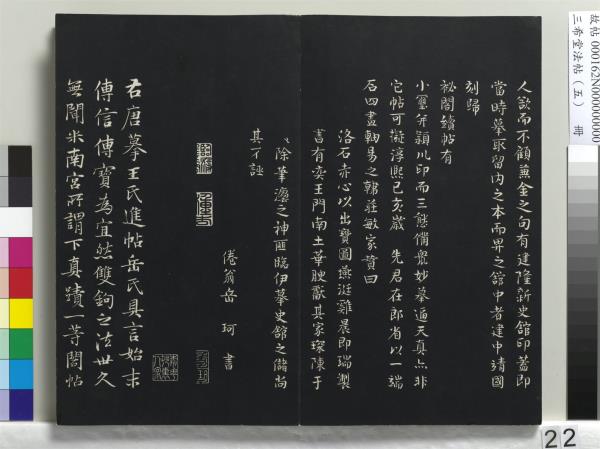 人歘而不顧蕉金之句有建隆新史館印蓋即
當時摹取留内之本而畀之館中者建中靖國
刻歸
祕閣續帖有
小璽并潁川印而三態備麑妙摹逼天真亦非
它帖可擬淳熙己亥歲 先君在郎省以一端
石四畫軸易之鄣莊敏家贊曰
洛石赤心以出寶圖燕涎雞晨即瑞製
書有奕王門南土華腴厭其家琛陳于
除筆瀍之神匪臨伊摹史館之儲尚
其不誣
倦翁岳 珂 書
右唐摹王氏進帖岳氏具言始末
傳信傳寶為宜然雙鉤之法世久
無聞米南宮所謂下真蹟一等閣帖
故帖 000162N000000000
三希堂法帖(五) 冊
22